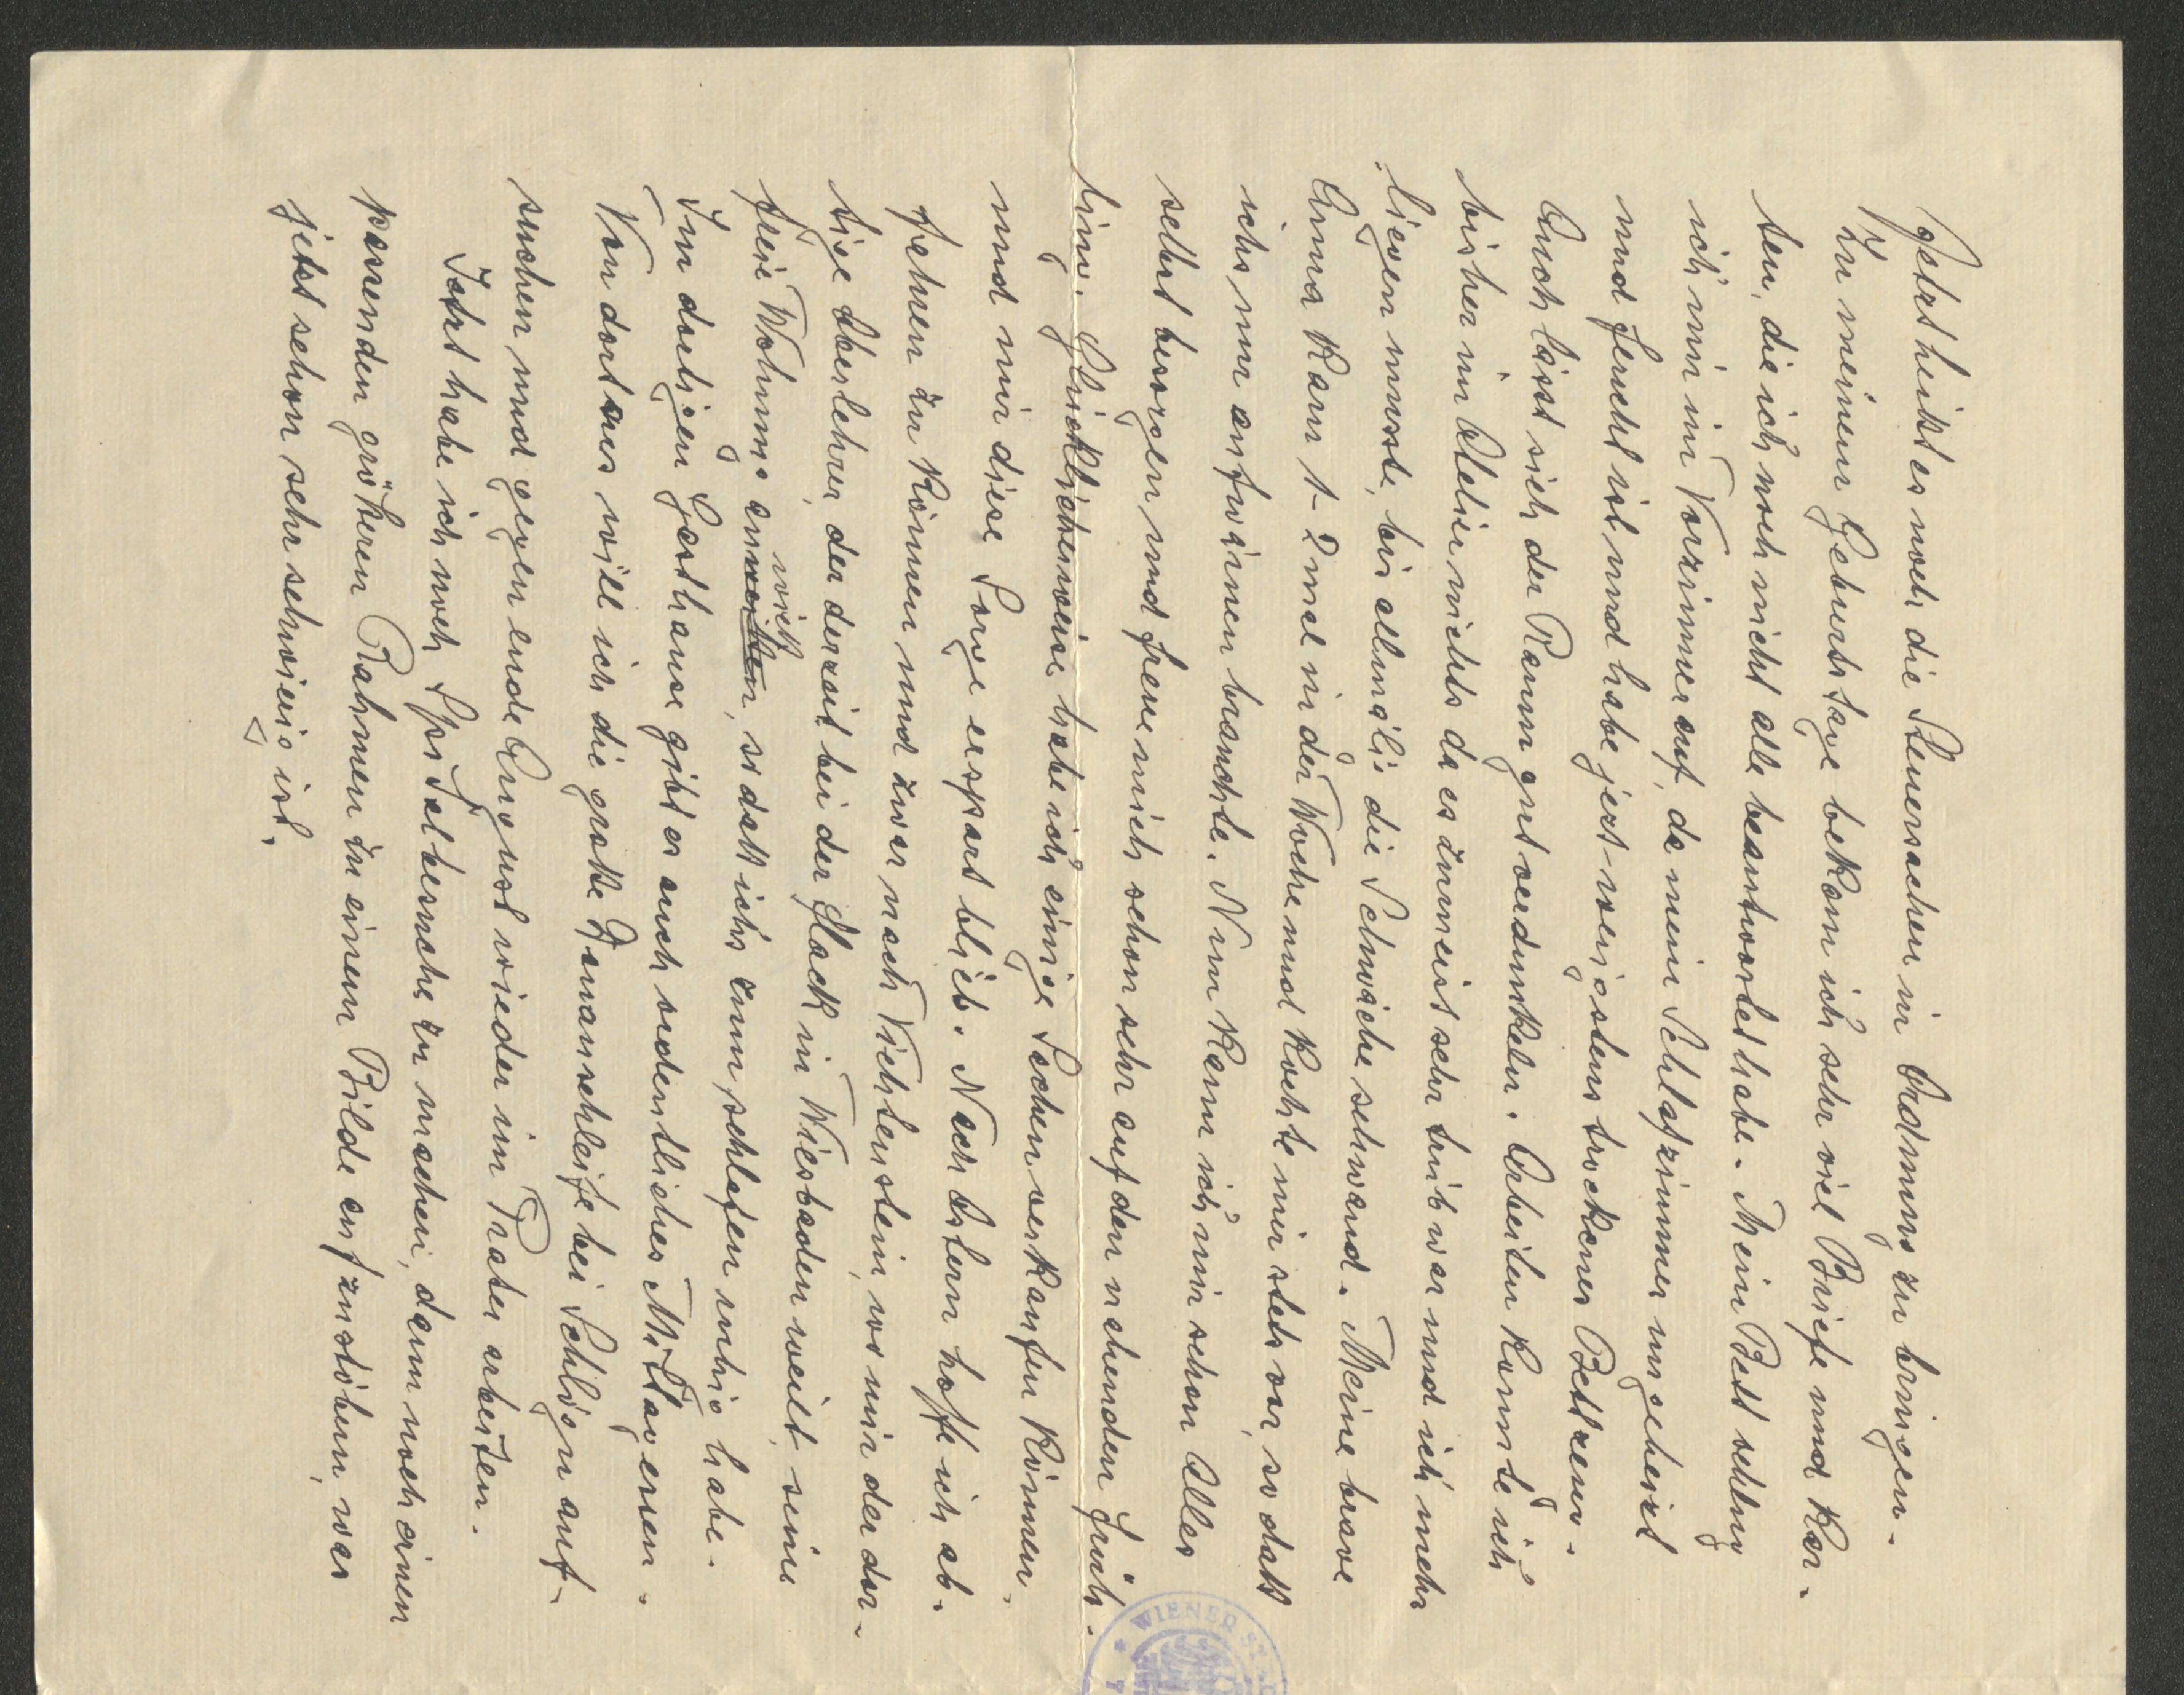 Jetzt heißt es noch die Steuersachen in Ordnung zu bringen.
Zu meinem Geburtstage bekam ich sehr viel Briefe und Kar-
ten, die ich noch nicht alle beantwortet habe. Mein Bett schlug
ich mir im Vorzimmer auf, da mein Schlafzimmer ungeheizt
und feucht ist und habe jezt wenigstens trockenes Bettzeug.
Auch lässt sich der Raum gut verdunkeln. Arbeiten konnte ich
bisher im Atelier nichts da es zumeist sehr trüb war und ich mehr
liegen musste, bis allmälig die Schwäche schwand. Meine brave
Anna kam 1-2 mal in der Woche und kochte mir stets vor, so daß
ichs nur aufwärmen brauchte. Nun kann ich mir schon Alles
selbst besorgen und freue mich schon sehr auf den nahenden Früh-
ling. Glücklicherweise habe ich einige Sachen verkaufen können,
und mir diese Sorge erspart blieb. Nach Ostern hoffe ich ab-
fahren zu können und zwar nach Viechtenstein, wo mir der dor-
tige Oberlehrer, der derzeit bei der Flack in Wiesbaden weilt, seine
freie Wohnung anweiten, so daß ichs zum schlafen ruhig habe.
wieß
Im dortigen Gasthause gibt es auch ordentliches Mittagessen.
Von dort aus will ich die große Donauschleife bei Schlögen auf-
suchen und gegen ende August wieder im Prater arbeiten.
Jetzt habe ich noch Spitalbesuche zu machen, dann noch einen
passenden größeren Rahmen zu einem Bilde aufzustöbern, was
jetzt schon sehr schwierig ist.
WIENER ST